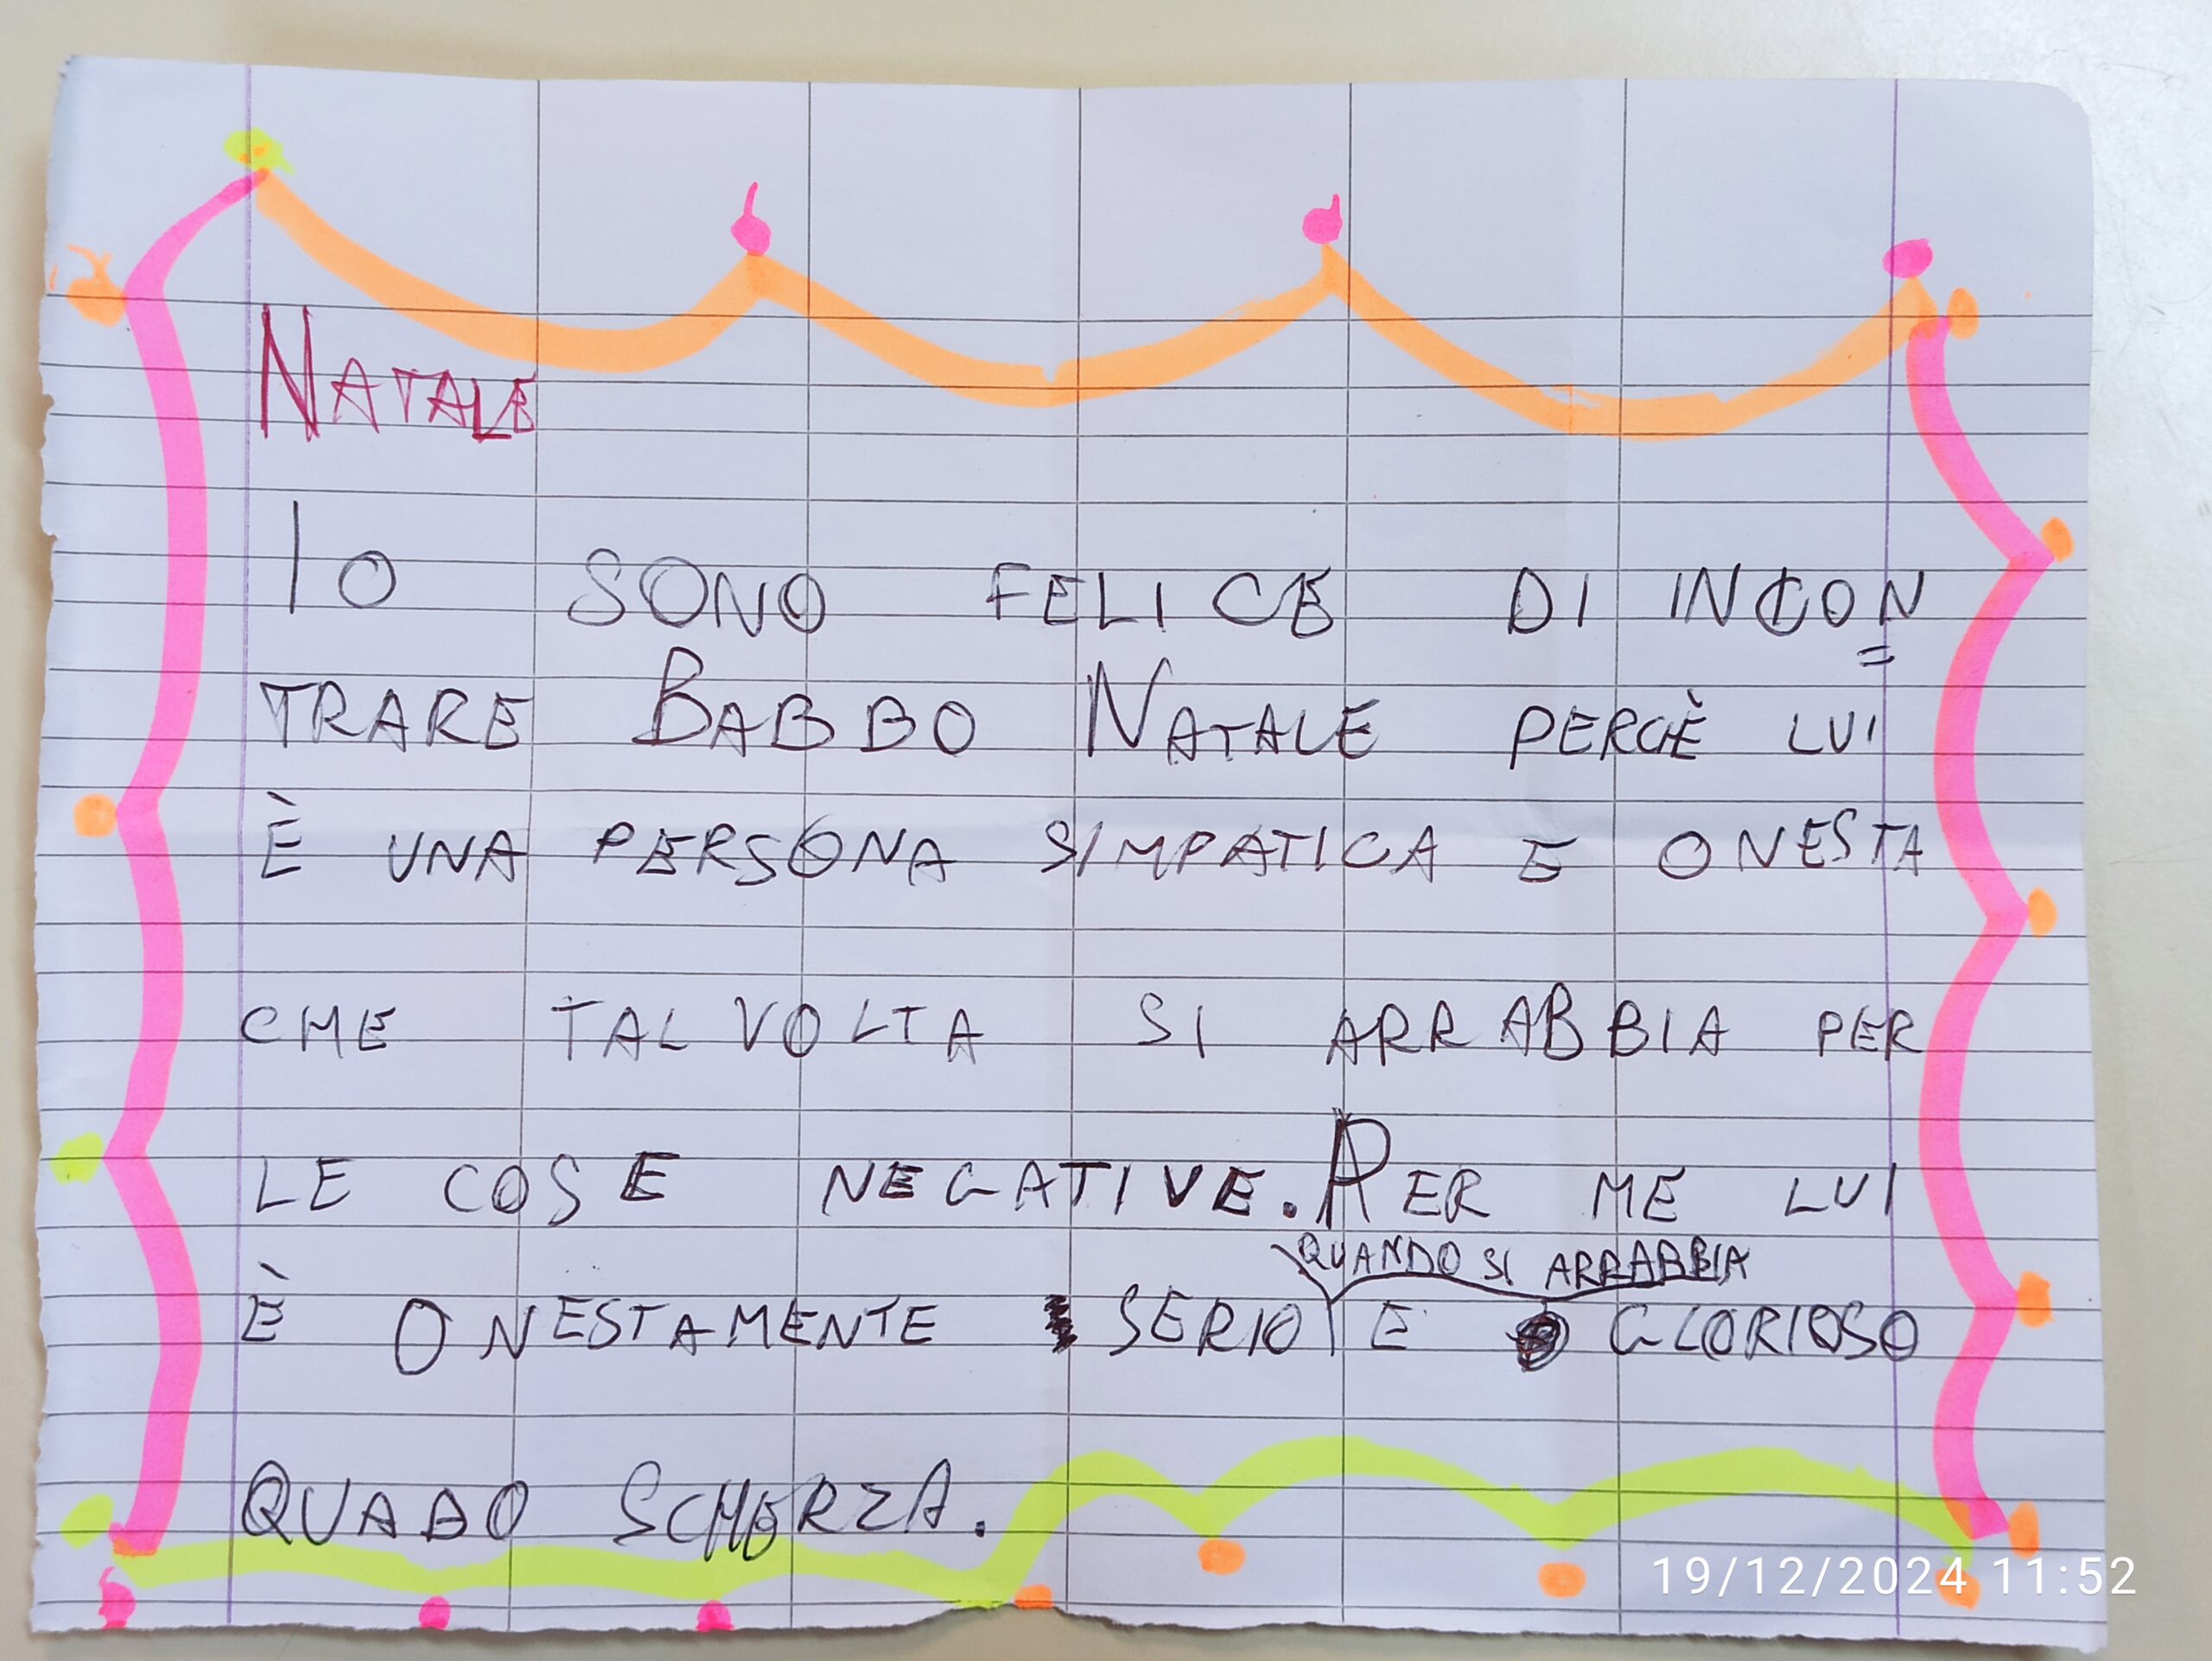 NATALE
IO SONO FELICE DI INCON=
TRARE BABBO NATALE PERCHÈ LUI
È UNA PERSONA SIMPATICA E ONESTA
CHE TALVOLTA SI ARRABBIA PER
LE COSE NEGATIVE. PER ME LUI
QUANDO SI ARRABBIA
È ONESTAMENTE SERIO E GLORIOSO
QUADO SCHERZA.
19/12/2024 11:52